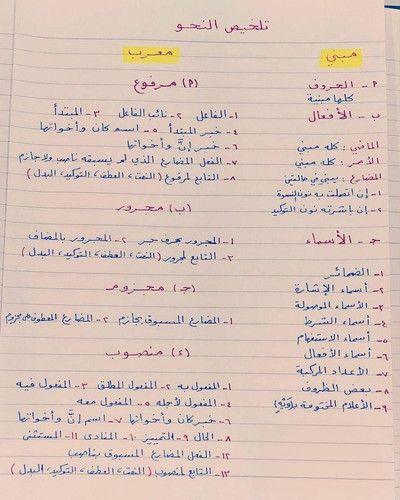 تلخيص النحو
مبني
أ - الحروف
كلها مبنية
ب - الأفعال
الماضي : كله مبني
الأمر : كله مبني
المضارع : يبنى في حالتين
١- إن اتصلت به نون النسوة
٢- إن باشرته نون التوكيد
جـ - الأسماء
١- الضمائر
٢- أسماء الإشارة
٣- الأسماء الموصولة
٤- أسماء الشرط
٥- أسماء الاستفهام
٦- أسماء الأفعال
٧- الأعداد المركبة
٨- بعض الظروف
٩- الأعلام المختومة بـ(وَيْهِ)
معرب
(أ) مرفوع
١- الفاعل ٢- نائب الفاعل ٣- المبتدأ
٤- خبر المبتدأ ٥- اسم كان وأخواتها
٦- خبر إنَّ وأخواتها
٧- الفعل المضارع الذي لم يسبقه ناصب ولا جازم
٨- التابع لمرفوع ( النعت، العطف، التوكيد، البدل )
(ب) مجرور
١- المجرور بحرف جر ٢- المجرور بالمضاف
٣- التابع لمجرور ( النعت، العطف، التوكيد، البدل )
(جـ) مجزوم
١- المضارع المسبوق بجازم ٢- المضارع المعطوف على مجزوم
(د) منصوب
١- المفعول به ٢- المفعول المطلق ٣- المفعول فيه
٤- المفعول لأجله ٥- المفعول معه
٦- خبر كان وأخواتها ٧- اسم إنَّ وأخواتها
٨- الحال ٩- التمييز ١٠- المنادى ١١- المستثنى
١٢- الفعل المضارع المسبوق بناصب
١٣- التابع لمنصوب ( النعت، العطف، التوكيد، البدل )